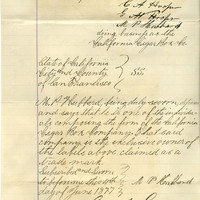 C. A. Hooper
M. P. Hubbard
doing business as the
California Cigar Box Co.
State of California
City and County } SS
of San Francisco
M. P. Hubbard being duly sworn deposes
and says that he is one of the individ-
uals composing the firm of the California
Cigar Box Company that said
company is the exclusive owner of
the label above claimed as a
trade mark
Subscribed and Sworn
to before me this
day of
June 1877
M. P. Hubbard